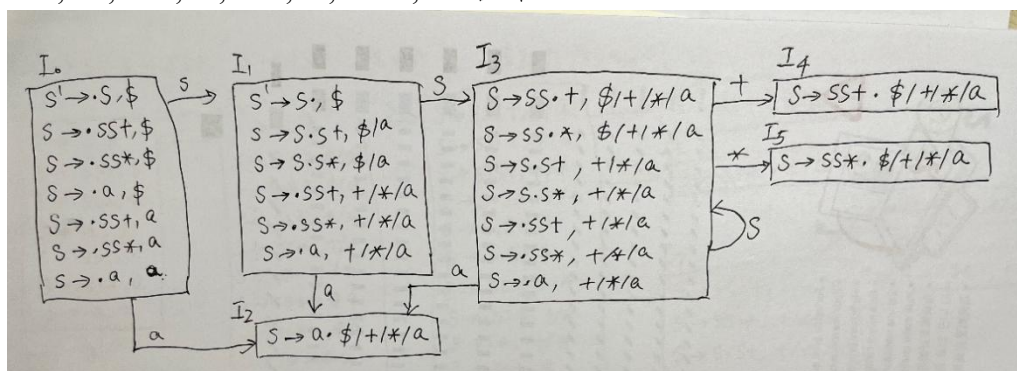 I₀
S' → ·S, $
S → ·SS+, $
S → ·SS*, $
S → ·a, $
S → ·SS+, a
S → ·SS*, a
S → ·a, a
S
a
I₁
S' → S·, $
S → S·S+, $/a
S → S·S*, $/a
S → ·SS+, +/*/a
S → ·SS*, +/*/a
S → ·a, +/*/a
S
a
I₂
S → a· $/+/*/a
I₃
S → SS·+, $/+/*/a
S → SS·*, $/+/*/a
S → S·S+, +/*/a
S → S·S*, +/*/a
S → ·SS+, +/*/a
S → ·SS*, +/*/a
S → ·a, +/*/a
a
S
+
*
I₄
S → SS+· $/+/*/a
I₅
S → SS*· $/+/*/a